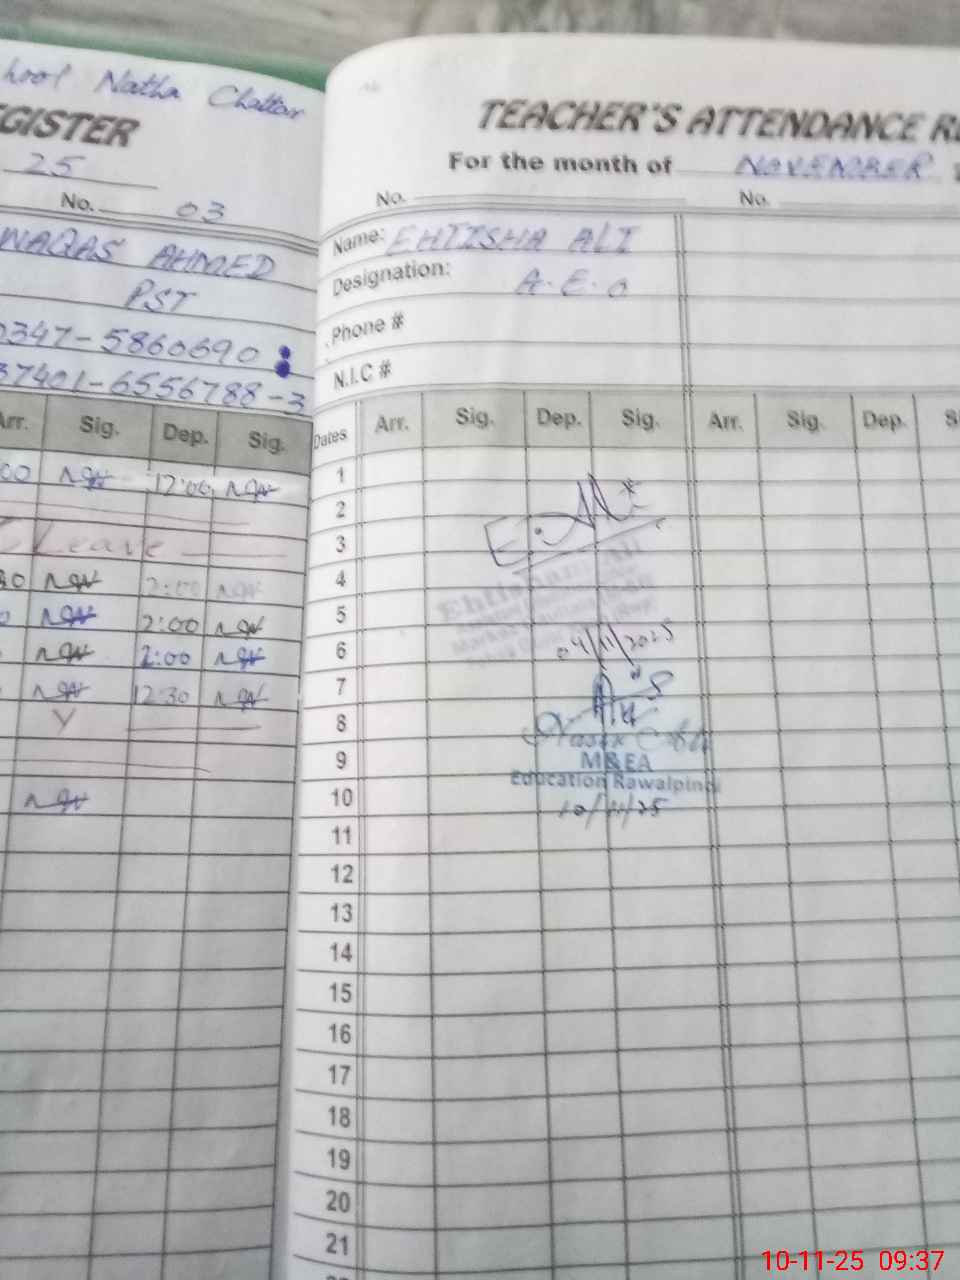 hool Natha Chattar
GISTER
25
No. 03
WAQAS AHMED
PST
0347-5860690
37401-6556788-3
Arr. Sig. Dep. Sig.
00 12:00
Leave
30 2:00
0 2:00
2:00
12:30
TEACHER'S ATTENDANCE RE
For the month of NOVEMBER 2
No. No.
Name: EHTISHA ALI
Designation: A.E.O
Phone #
N.I.C #
Dates Arr. Sig. Dep. Sig. Arr. Sig. Dep. S
1
2
3
4
5
6
04/11/2025
7
8
9
M&EA
Education Rawalpindi
10
10/11/25
11
12
13
14
15
16
17
18
19
20
21
10-11-25 09:37